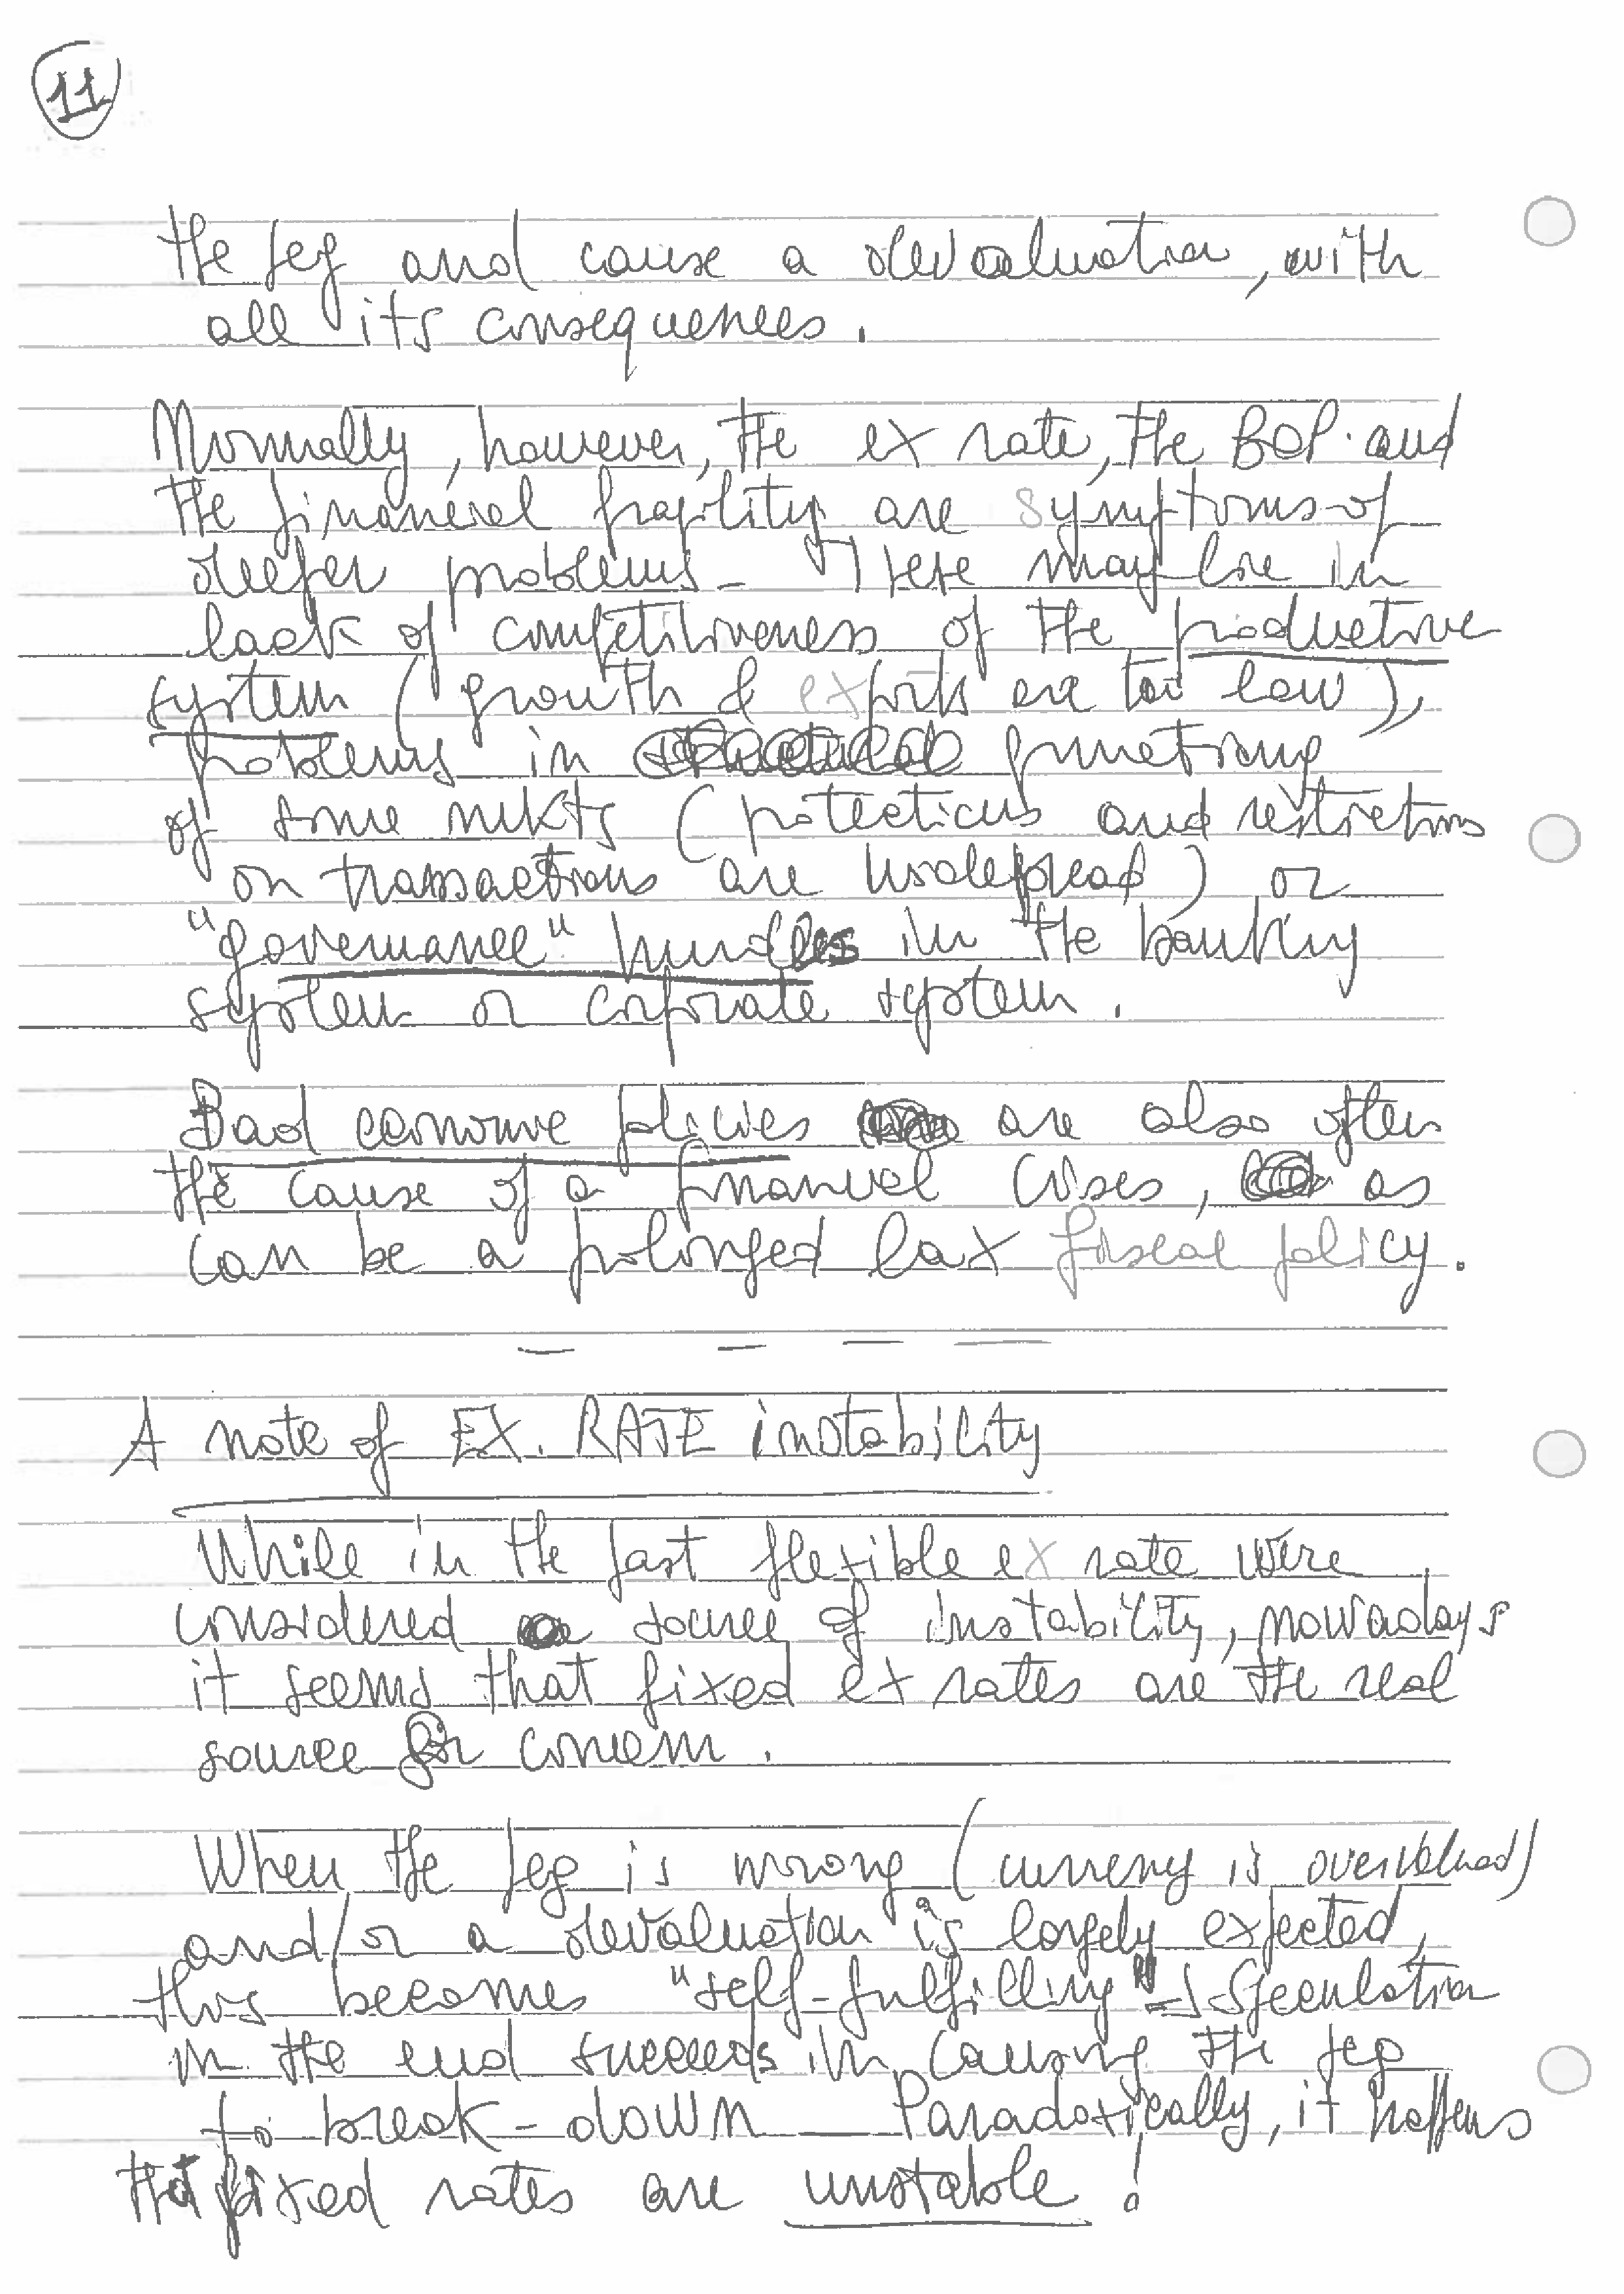 11
the peg and cause a devaluation, with
all its consequences.
Normally, however, the ex rate, the BOP. and
the financial fragility are symptoms of
deeper problems - These may lie in
lack of competitiveness of the productive
system (growth & exports are too low),
problems in functioning
of some mkts (protections and restrictions
on transactions are widespread) or
"governance" hurdles in the banking
system or corporate system.
Bad economic policies are also often
the cause of a financial crises, as
can be a prolonged lax fiscal policy.
A note of EX. RATE instability
While in the past flexible ex rate were
considered a source of instability, nowadays
it seems that fixed ex rates are the real
source for concern.
When the peg is wrong (currency is overvalued)
and/or a devaluation is largely expected,
this becomes "self-fulfilling" => Speculation
in the end succeeds in causing the peg
to break-down - Paradoxically, it happens
that fixed rates are unstable!